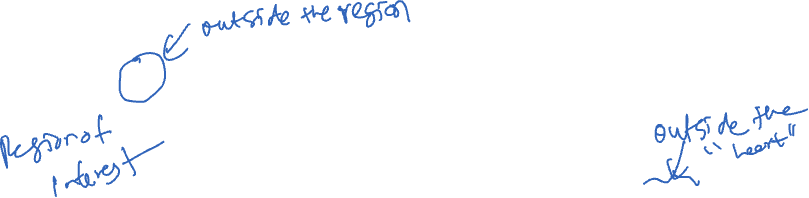 outside the region
Region of
interest
outside the
"heart"